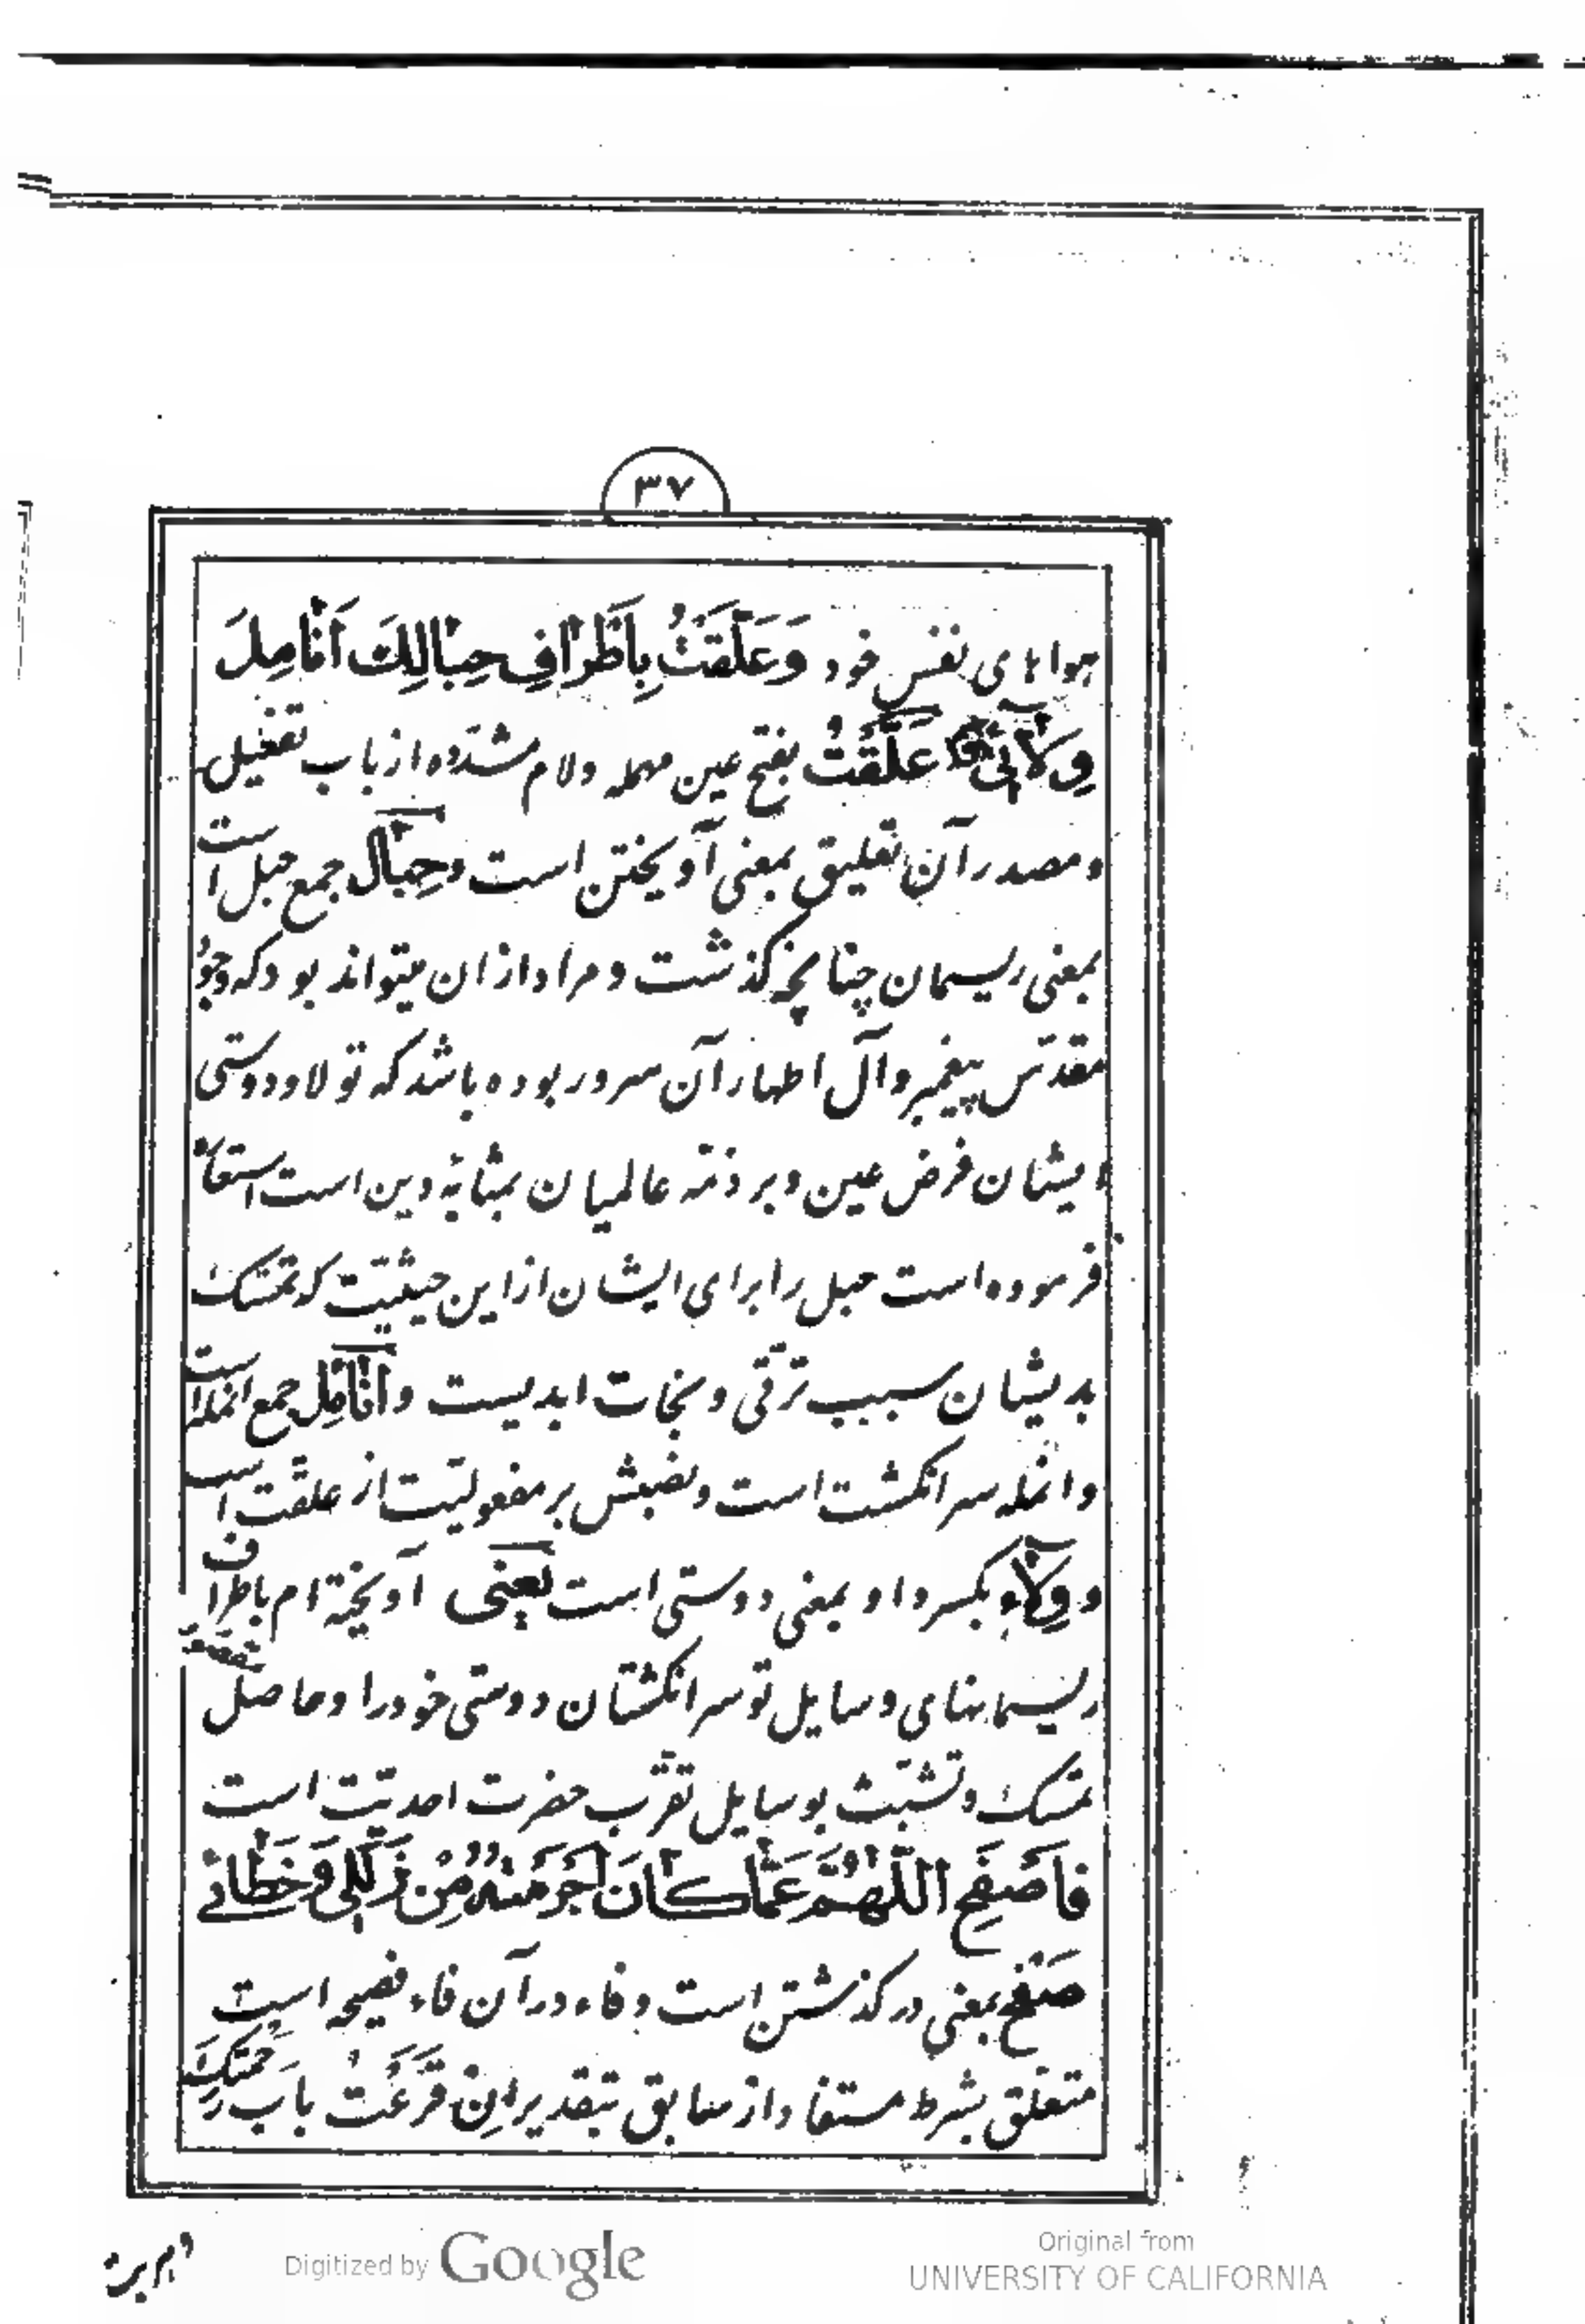 ۳۷
هواهای نفس خود وَعَلَّقَتْ بِأَطْرَافِ حِبَالِكَ اَنَامِلَ
وِلَآئى عَلَّقَتْ بفتح عین مهمله ولام مشدّده از باب تفعیل
ومصدر آن تعلیق بمعنی آویختن است وحِبال جمع حبل است
بمعنی ریسمان چنانچه گذشت ومراد ازان میتواند بود که وجود
مقدّس پیغمبر وآل اطهار آن سرور بوده باشد که تولا ودوستی
ایشان فرض عین وبر ذمّه عالمیان بمثابهٔ دین است استعاره
فرموده است حبل را برای ایشان از این حیثیّت که تمسّک
بدیشان سبب ترقّی ونجات ابدیست واَنامِل جمع انمله است
وانمله سر انکشت است ونصبش بر مفعولیّت از علقت است
ووِلاء بکسر واو بمعنی دوستی است یعنی آویخته ام باطراف
ریسمانهای وسایل تو سر انکشتان دوستی خود را وحاصل
تمسّک وتشبّث بوسایل تقرّب حضرت احدیّت است
فَاصْفَحِ اللّهُمَّ عَمَّا كَانَ مِنْ زَلَلِی وَخَطَائی
صَفْح بمعنی در کذشتن است وفاء در آن فاء فصیحه است
متعلق بشرط مستفاد از سابق بتقدیر اِنْ قَرَعْتُ بابَ رَحْمَتِكَ
Digitized by Google
Original from
UNIVERSITY OF CALIFORNIA